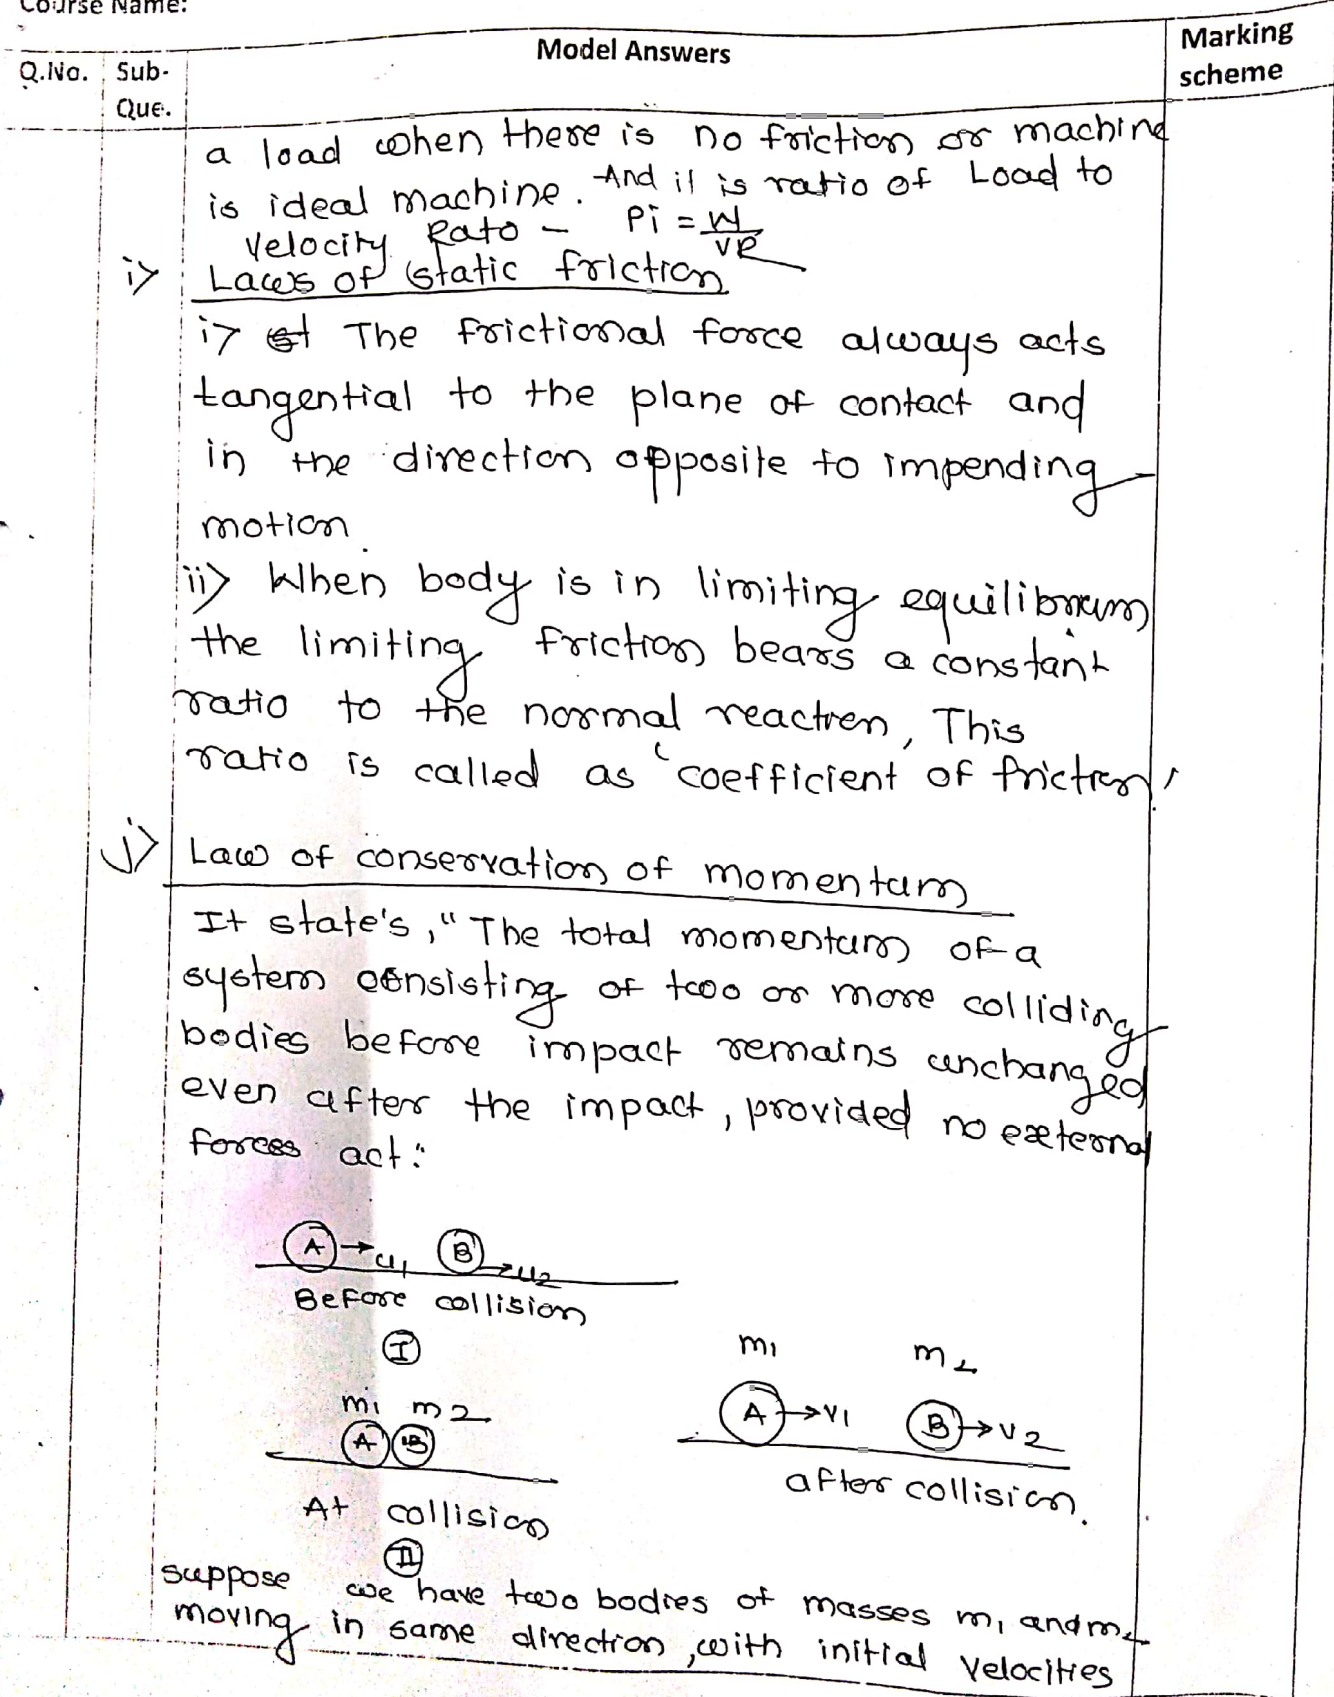 Course Name:
Q.No.
Sub-
Que.
Model Answers
Marking
scheme
a load when there is no friction or machine
is ideal machine. And it is ratio of Load to
Velocity Rato - Pi = W/VR
i> Laws of static friction
i> The frictional force always acts
tangential to the plane of contact and
in the direction opposite to impending
motion.
ii> When body is in limiting equilibrium
the limiting friction bears a constant
ratio to the normal reaction, This
ratio is called as 'coefficient of friction'
j> Law of conservation of momentum
It state's, "The total momentum of a
system consisting of two or more colliding
bodies before impact remains unchanged
even after the impact, provided no external
forces act."
A → u1 B → u2
Before collision
I
m1 m2
A B
At collision
II
m1 m2
A → v1 B → v2
after collision.
suppose we have two bodies of masses m1 and m2
moving in same direction, with initial velocities